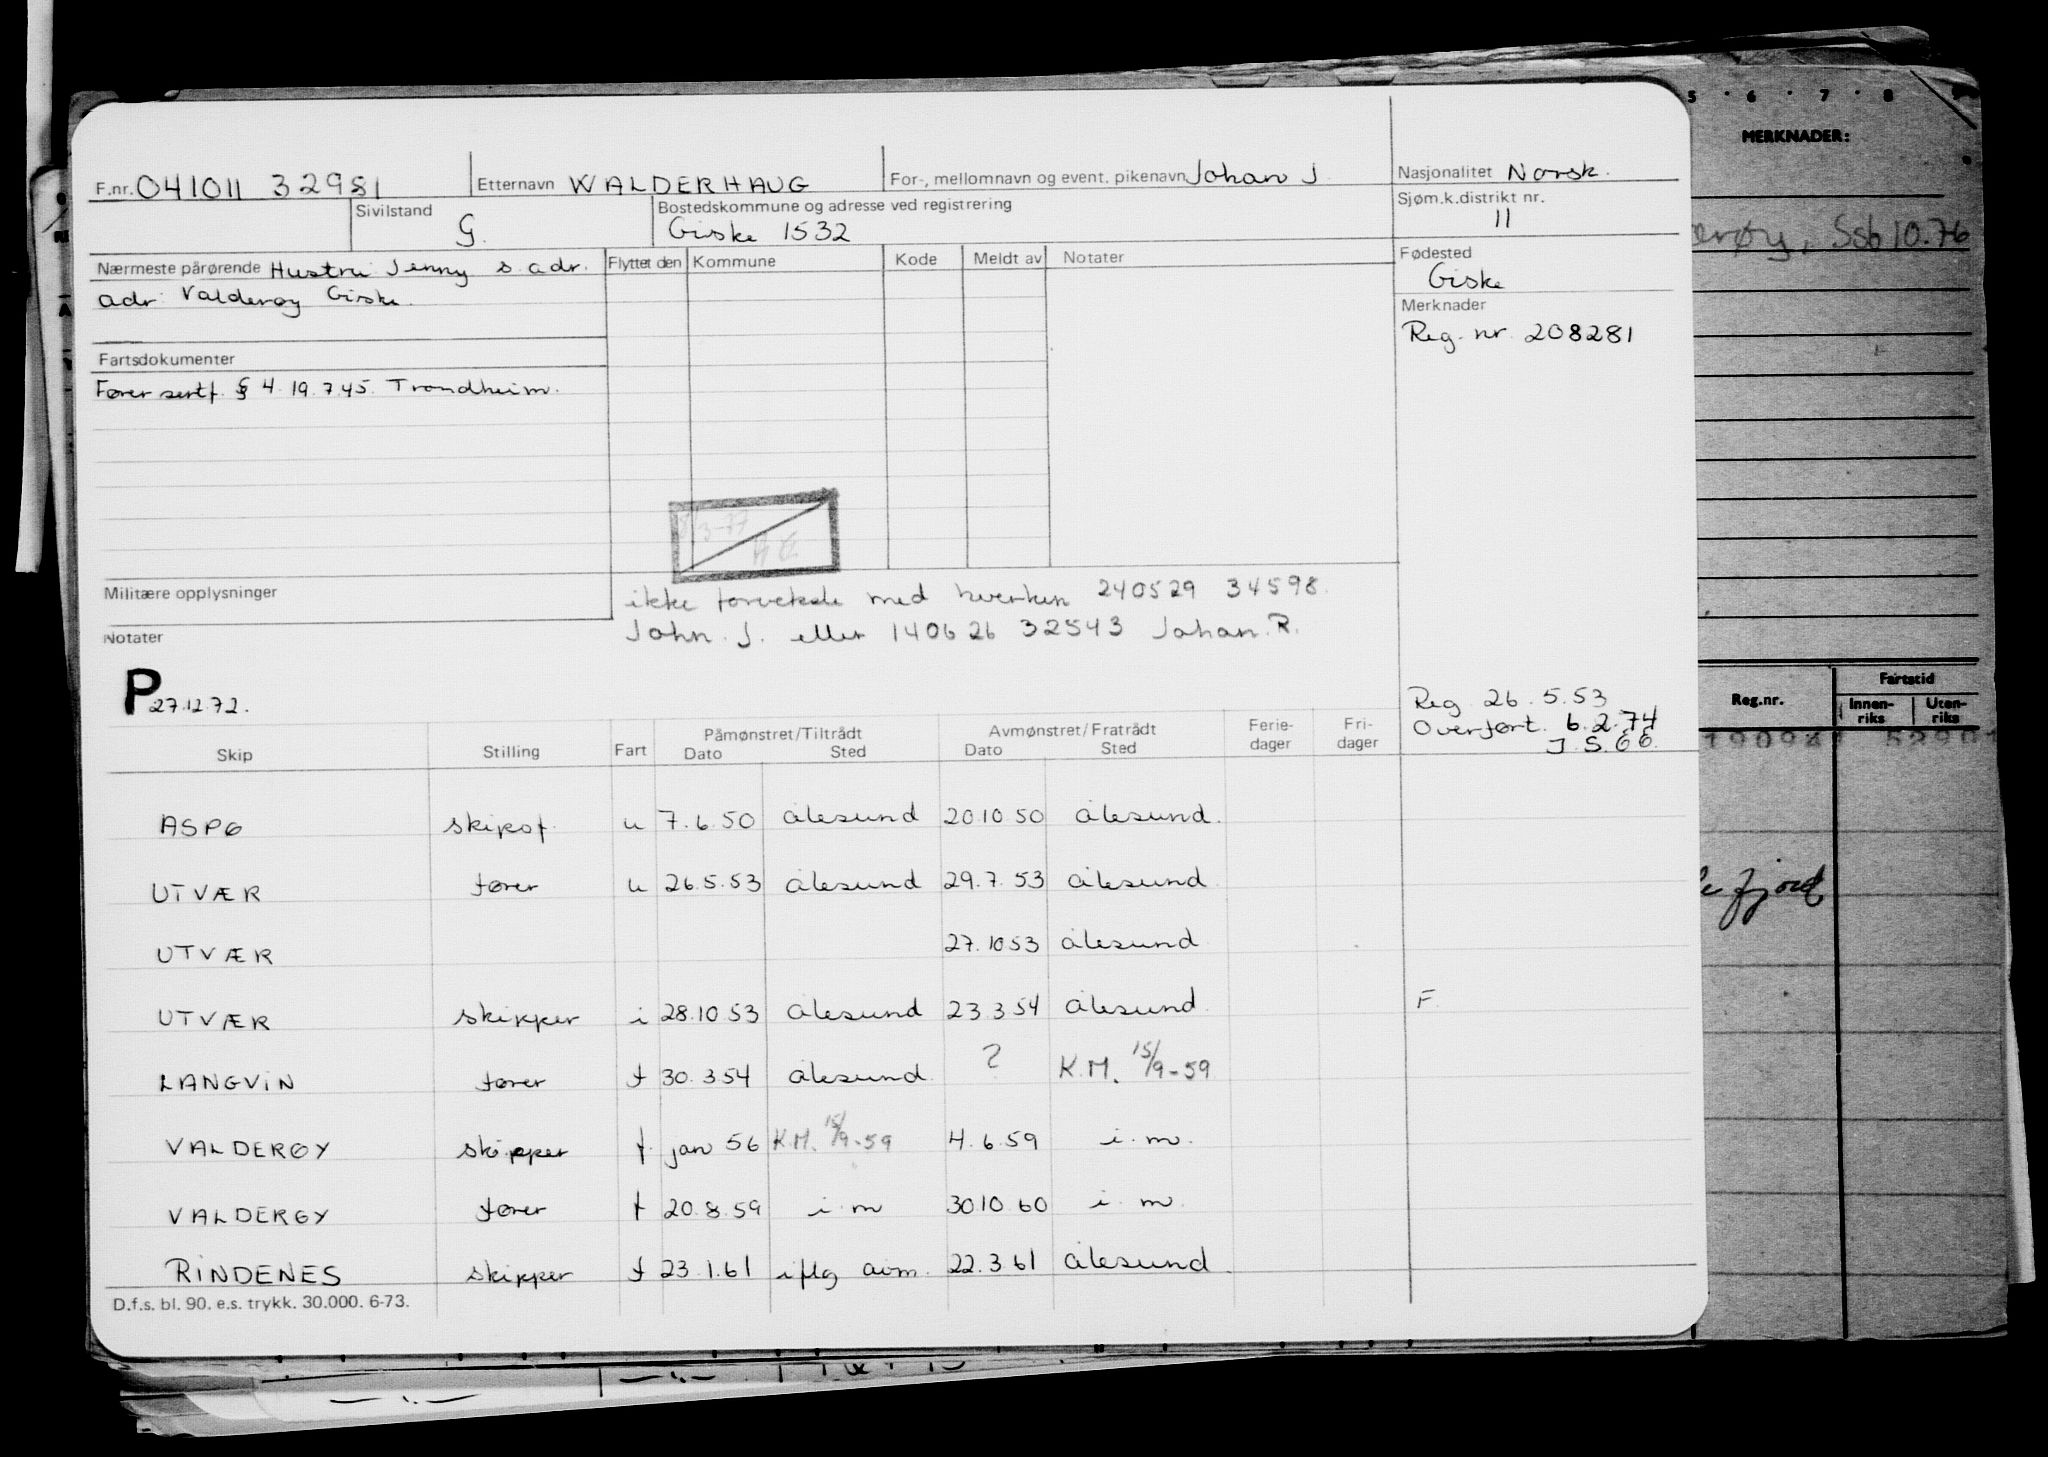 F.nr. 041011 32981 Etternavn WALDERHAUG For-, mellomnavn og event. pikenavn Johan J. Nasjonalitet Norsk.
Sivilstand G. Bostedskommune og adresse ved registrering Sjøm.k.distrikt nr.
Giske 1532 11
Nærmeste pårørende Hustru Jenny s. adr. Flyttet den Kommune Kode Meldt av Notater Fødested
adr. Valderøy Giske. Giske
Merknader
Reg. nr. 208281
Fartsdokumenter
Fører sertf. § 4. 19.7.45. Trondheim.
Militære opplysninger
ikke forveksle med hverken 240529 34598.
Notater
John. J. eller 140626 32543 Johan. R.
P 27.12.72.
Reg. 26.5.53
Overført. 6.2.74
J.S.66.
Påmønstret/Tiltrådt Avmønstret/Fratrådt Ferie- Fri-
Skip Stilling Fart Dato Sted Dato Sted dager dager
ASPØ skipof. u 7.6.50 Ålesund 20.10 50 Ålesund.
UTVÆR fører u 26.5.53 Ålesund 29.7.53 Ålesund
UTVÆR 27.10 53 Ålesund
UTVÆR skipper i 28.10 53 Ålesund 23.3 54 Ålesund. F.
LANGVIN fører f 30.3 54 Ålesund. ? K.M. 15/9-59
VALDERØY skipper f. jan 56 K.M. 15/9-59 4.6.59 i.m.
VALDERØY fører f 20.8.59 i.m 30.10 60 i.m.
RINDENES skipper f 23.1.61 iflg avm. 22.3 61 Ålesund.
D.f.s. bl. 90. e.s. trykk. 30.000. 6-73.
5 · 6 · 7 · 8
MERKNADER:
Ssb 10.76
Reg.nr. Fartstid
Innen-riks Uten-riks
fjord